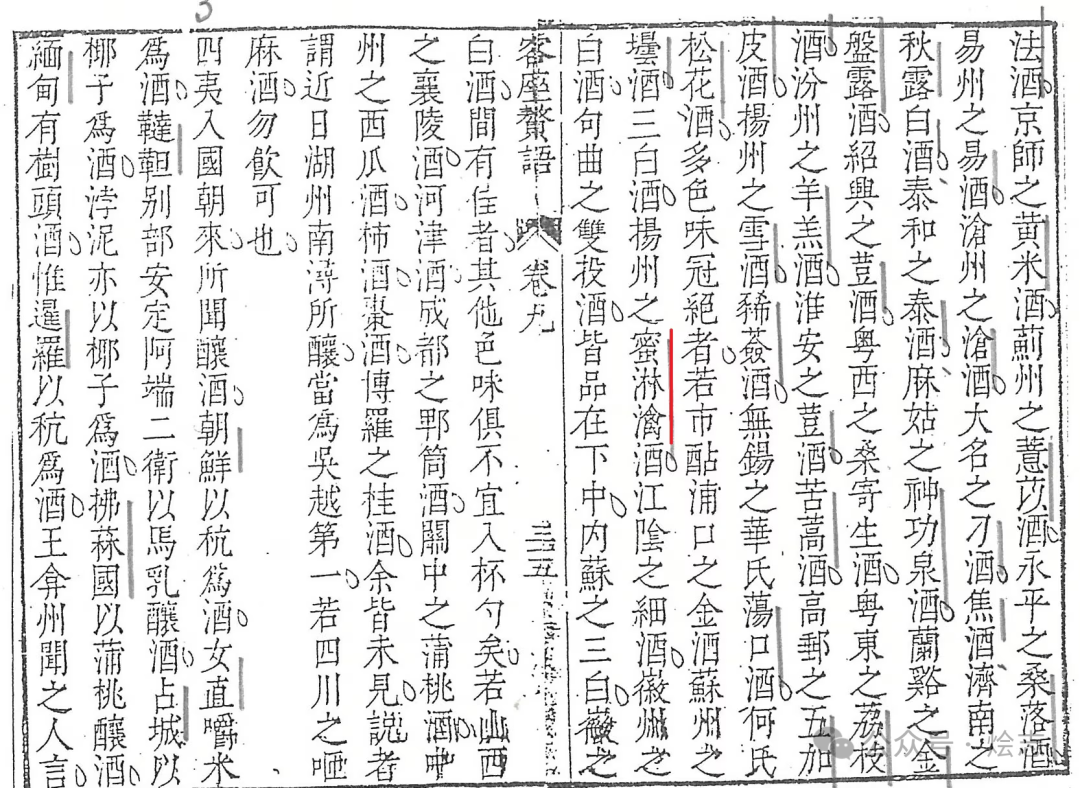 3
法酒京師之黃米酒薊州之薏苡酒永平之桑落酒
易州之易酒滄州之滄酒大名之刁酒焦酒濟南之
秋露白酒泰和之泰酒麻姑之神功泉酒蘭谿之金
盤露酒紹興之荳酒粤西之桑寄生酒粤東之荔枝
酒汾州之羊羔酒淮安之荳酒苦蒿酒高郵之五加
皮酒揚州之雪酒豨薟酒無錫之華氏蕩口酒何氏
松花酒多色味冠絕者若市酤浦口之金酒蘇州之
壜酒三白酒揚州之蜜淋漓酒江陰之細酒徽州之
白酒句曲之雙投酒皆品在下中内蘇之三白徽之
客座贅語 卷九 三五
白酒間有佳者其他色味俱不宜入杯勺矣若山西
之襄陵酒河津酒成都之郫筒酒關中之蒲桃酒中
州之西瓜酒柿酒棗酒博羅之桂酒余皆未見説者
謂近日湖州南潯所釀當爲吳越第一若四川之咂
麻酒勿飲可也
四夷入國朝來所聞釀酒朝鮮以秔爲酒女直嚼米
爲酒韃靼别部安定阿端二衛以馬乳釀酒占城以
椰子爲酒浡泥亦以椰子爲酒拂菻國以蒲桃釀酒
緬甸有樹頭酒惟暹羅以秔爲酒王弇州聞之人言
公众号